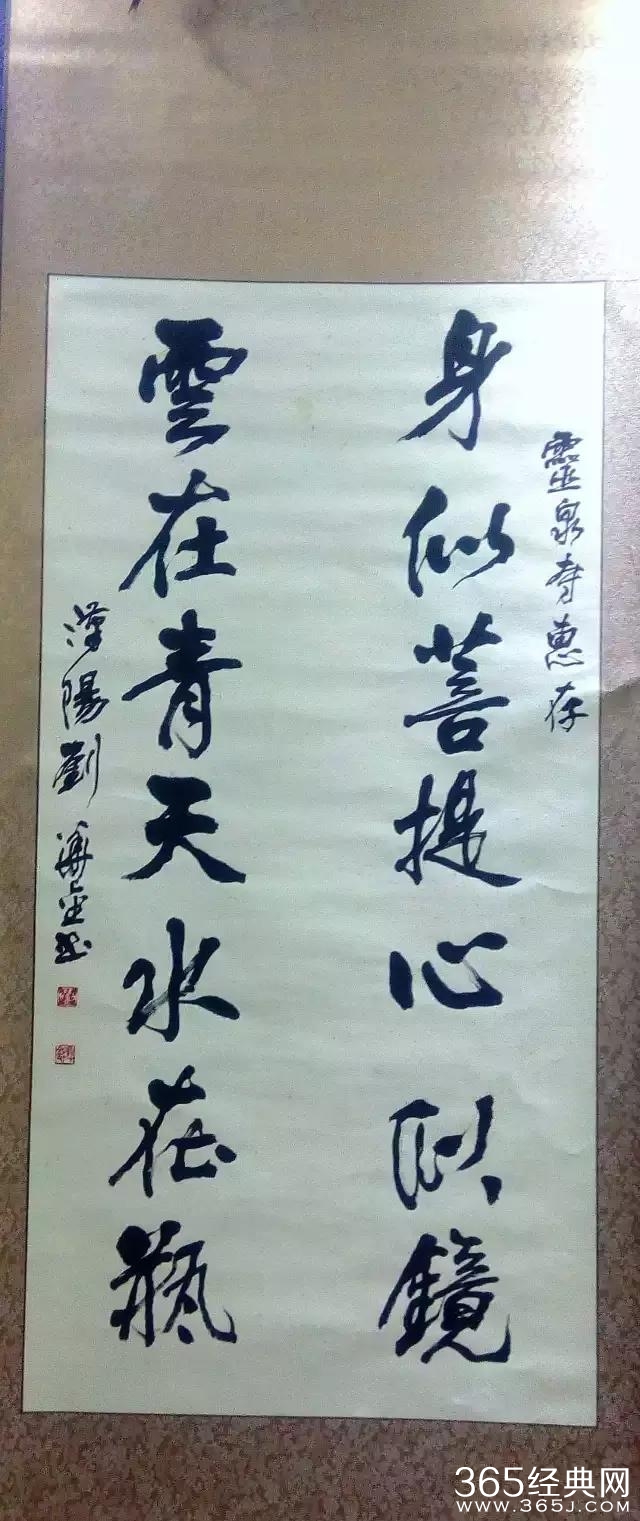 靈泉寺惠存
身似菩提心似鏡
雲在青天水在瓶
漢陽劉
365经典网
www.365J.COM